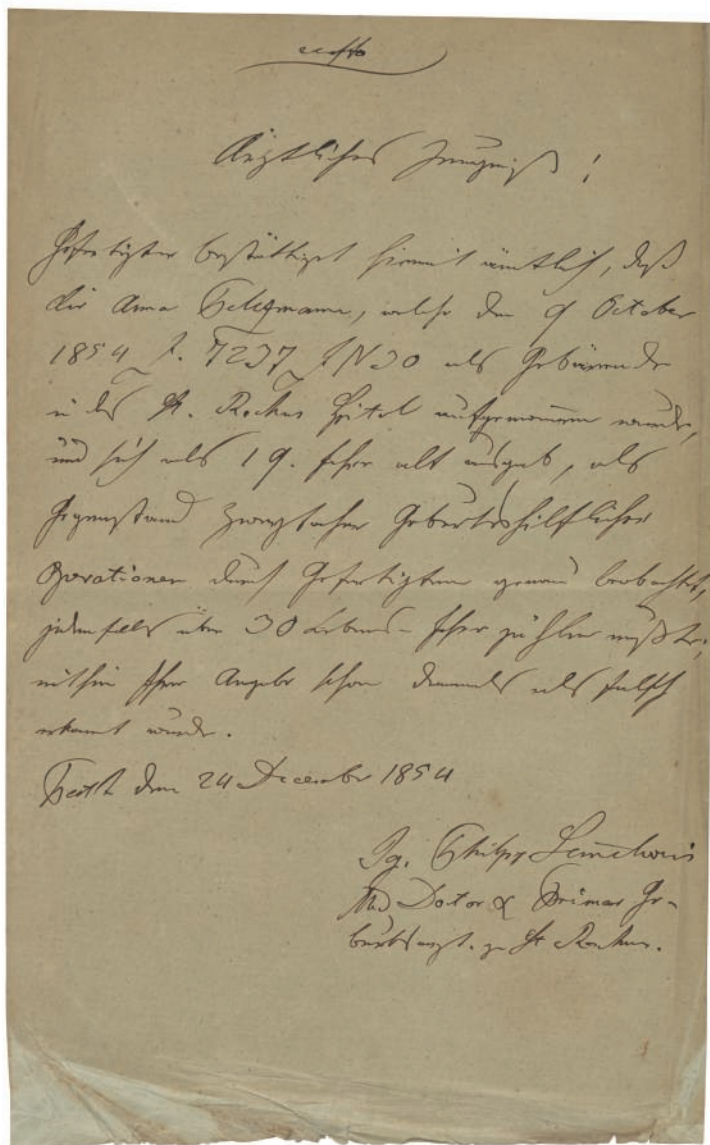 Ärztliches Zeugniß!
Gefertigter bestättiget hiemit ämtlich, daß
die Anna, welche den 9 October
1854 J. N 30 als Gebärende
in das St. Rochus Spital aufgenommen wurde,
und sich als 19. Jahr alt ausgab, als
Gegenstand Geburtshilflicher
Operationen durch Gefertigten genau beobachtet,
jedenfalls über 30 Lebens-Jahre zählen mußte,
mithin Ihre Angabe schon damals als falsch
erkannt wurde.
Pesth den 24 December 1854
Ig. Philipp
Med Doctor & Primar Ge-
burtsarzt. zu St Rochus.